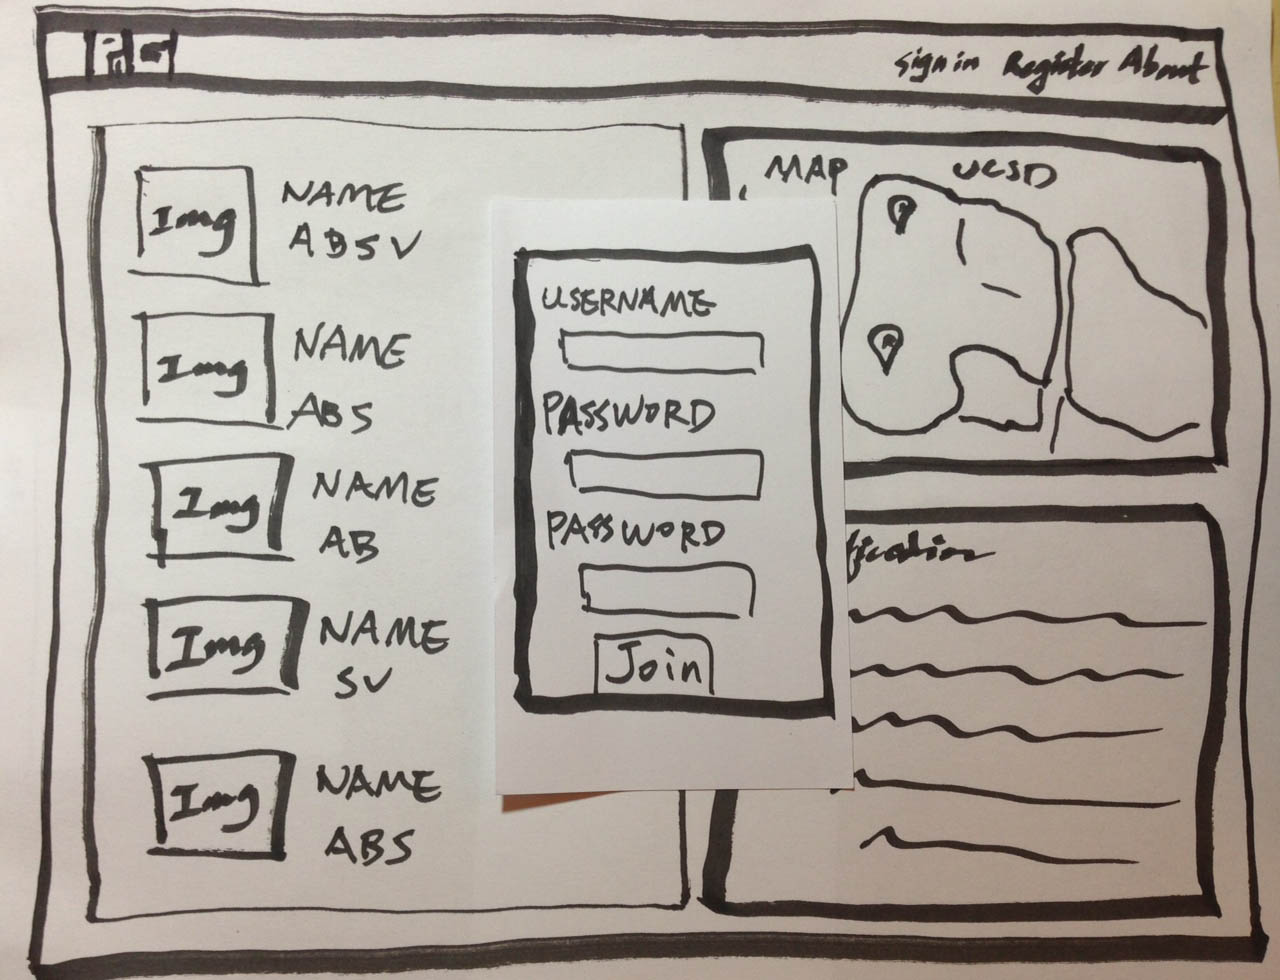 Sign in Register About
Img
NAME
ABSV
Img
NAME
ABS
Img
NAME
AB
Img
NAME
SV
Img
NAME
ABS
USERNAME
PASSWORD
PASSWORD
Join
MAP UCSD
fication